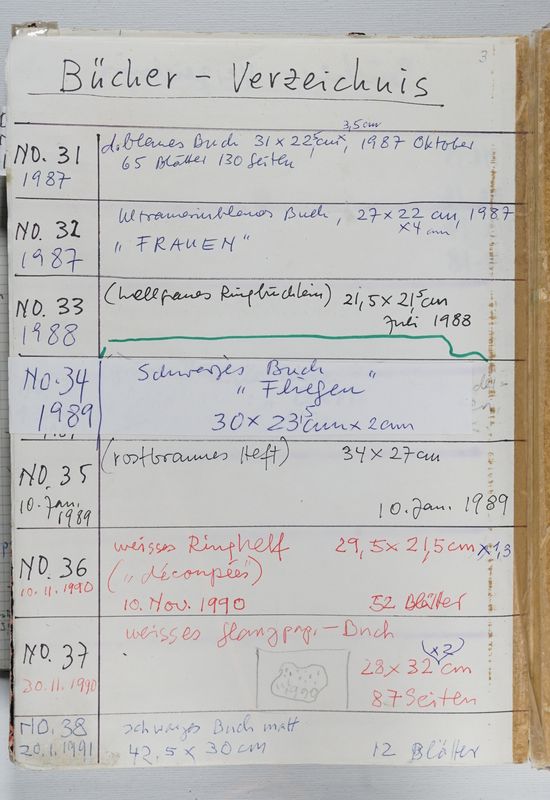 3
Bücher - Verzeichnis
NO. 31
1987
d.blaues Buch 31 x 22,5 cm x 3,5cm, 1987 Oktober
65 Blätter 130 Seiten
NO. 32
1987
Ultramarinblaues Buch, 27 x 22 cm, 1987
x 4 cm
„FRAUEN"
NO. 33
1988
(hellgraues Ringbüchlein) 21,5 x 21,5 cm
Juli 1988
NO. 34
1989
Schwarzes Buch
„Fliegen"
30 x 23,5 cm x 2cm
NO. 35
10. Jan.
1989
(rostbraunes Heft) 34 x 27 cm
10. Jan. 1989
NO. 36
10.11.1990
weisses Ringheft 29,5 x 21,5 cm x 1,3
(„découpées")
10. Nov. 1990 52 Blätter
NO. 37
20.11.1990
weisses Glanzpap.-Buch
(x2)
28 x 32 cm
87 Seiten
1990
NO. 38
20.1.1991
schwarzes Buch matt
42,5 x 30 cm 12 Blätter